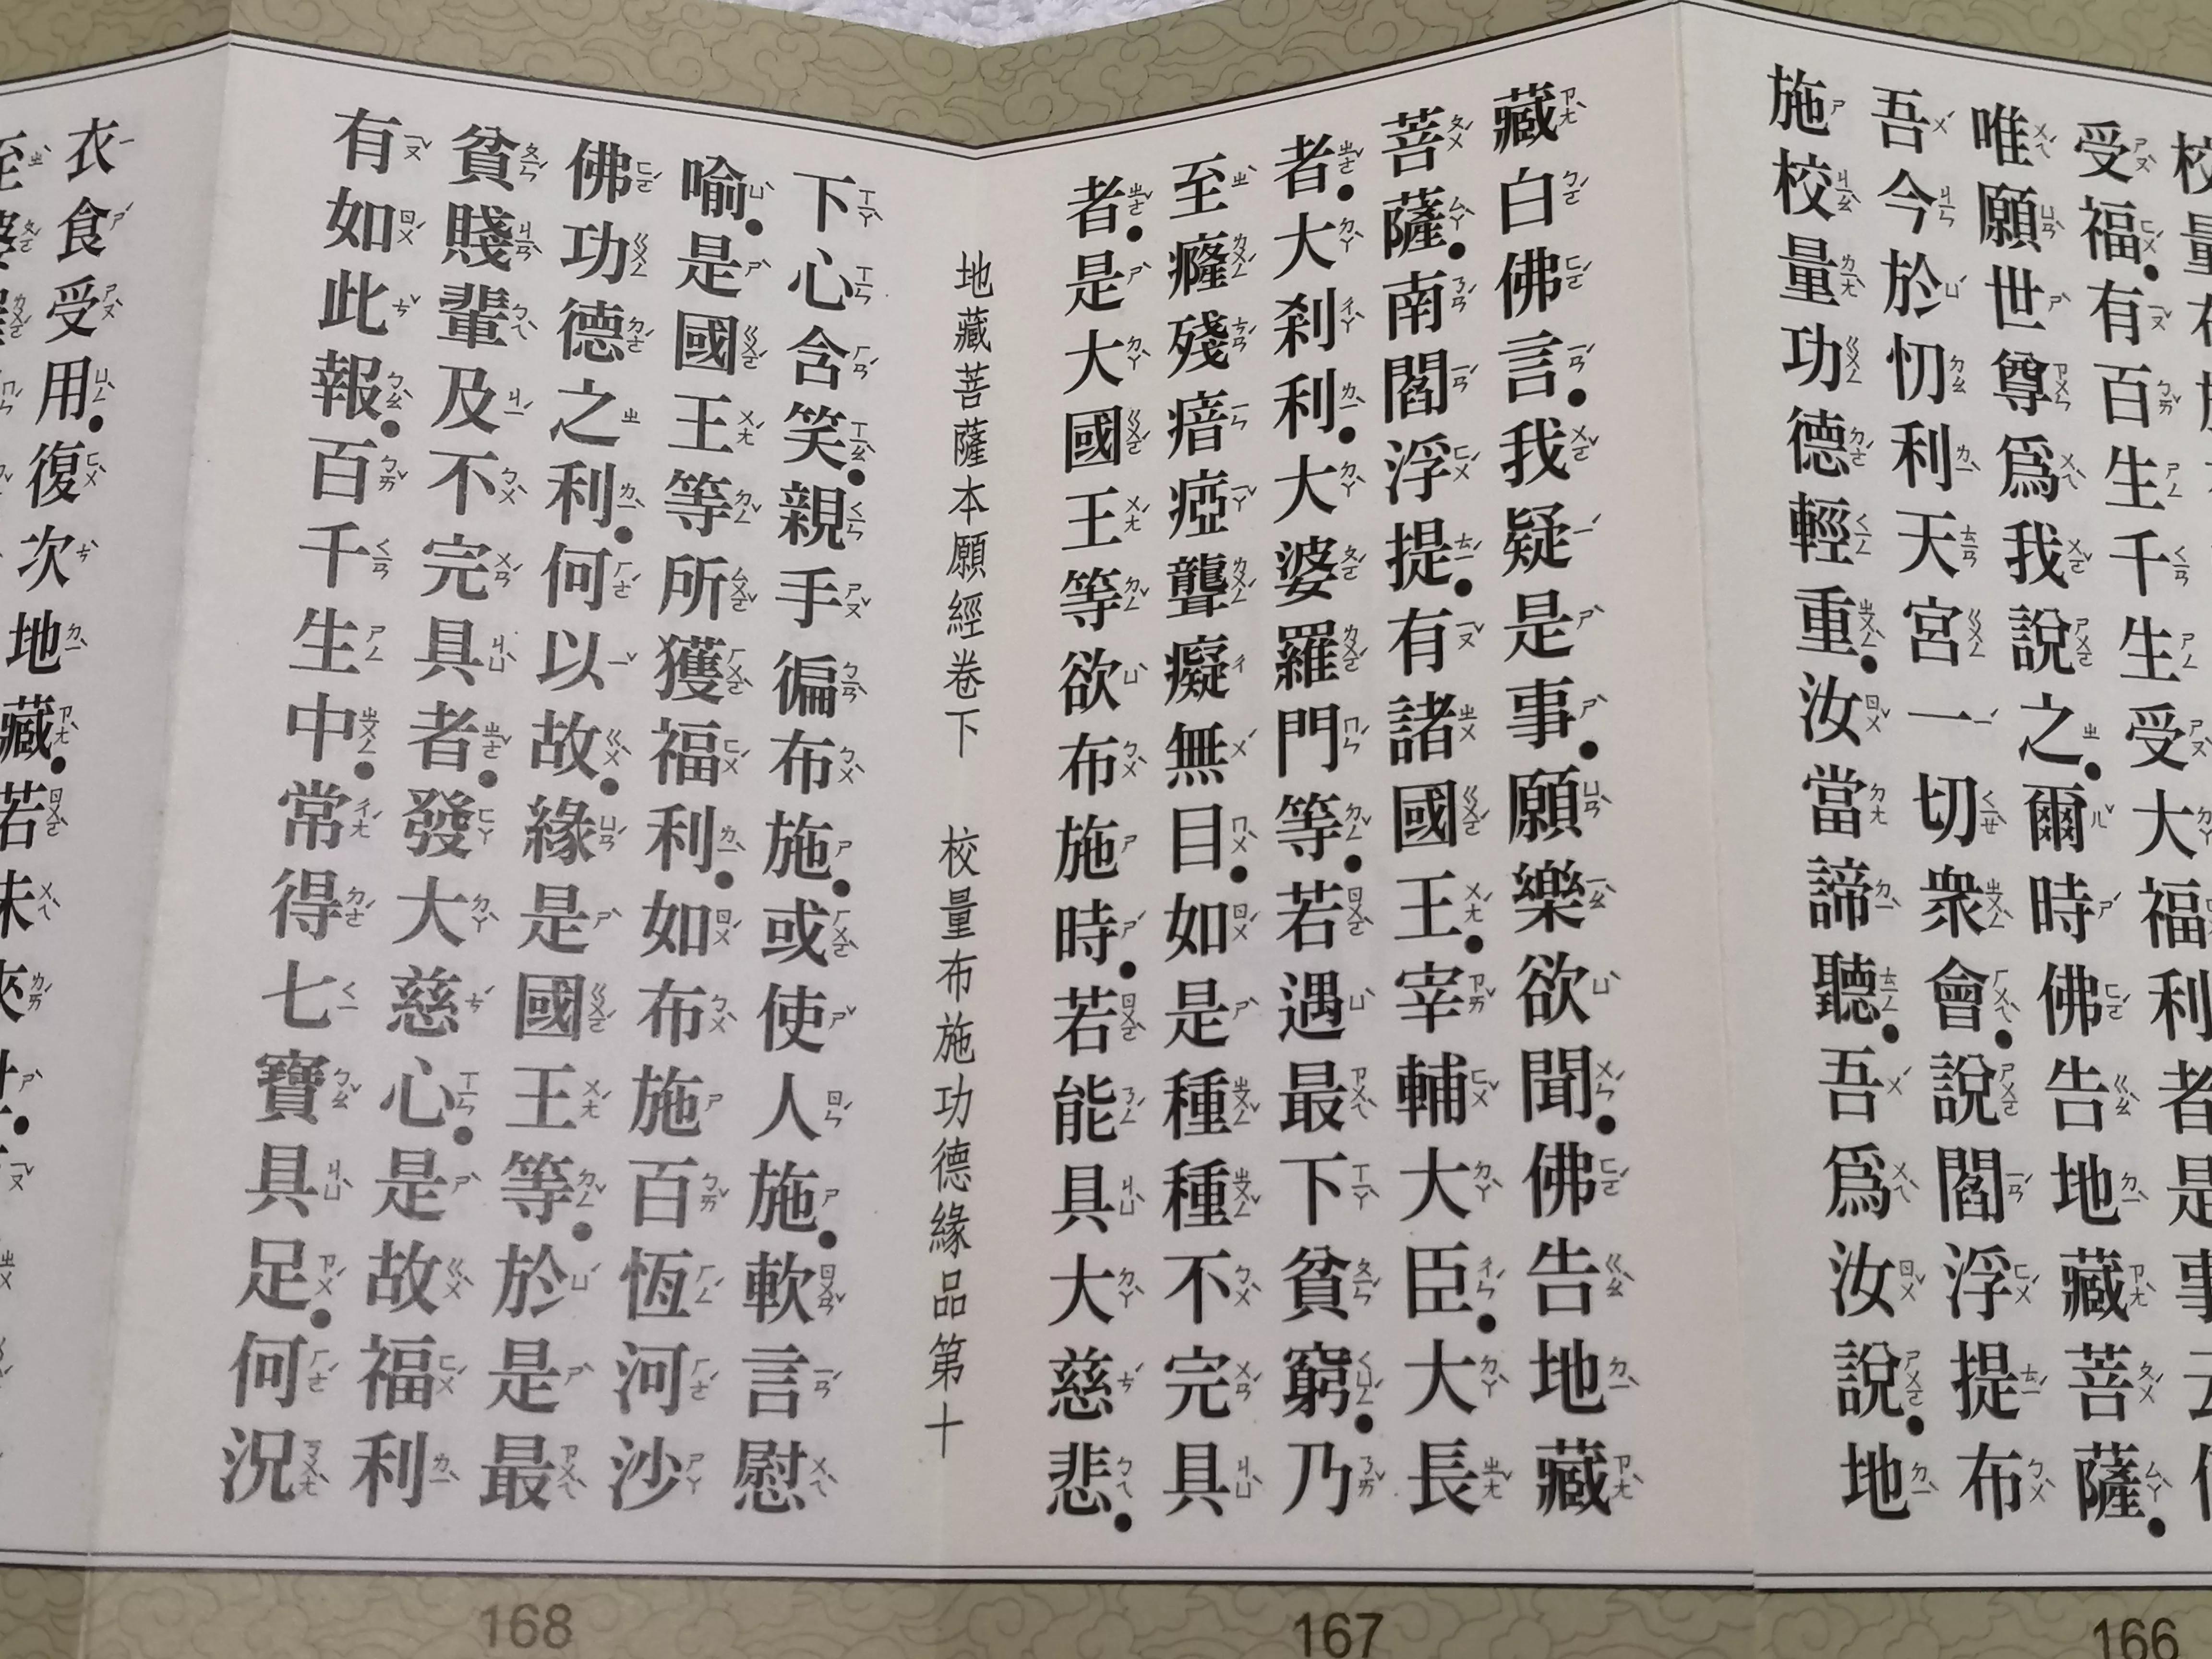 受福。有百生千生受大福利
唯願世尊爲我說之。爾時佛告地藏菩薩。
吾今於忉利天宮一切衆會。說閻浮提布
施校量功德輕重。汝當諦聽。吾爲汝說。地
藏白佛言。我疑是事。願樂欲聞。佛告地藏
菩薩。南閻浮提。有諸國王。宰輔大臣。大長
者。大剎利。大婆羅門等。若遇最下貧窮。乃
至癃殘瘖瘂聾癡無目。如是種種不完具
者。是大國王等欲布施時。若能具大慈悲。
地藏菩薩本願經卷下 校量布施功德緣品第十
下心含笑。親手徧布施。或使人施。軟言慰
喻。是國王等所獲福利。如布施百恆河沙
佛功德之利。何以故。緣是國王等。於是最
貧賤輩及不完具者。發大慈心。是故福利
有如此報。百千生中。常得七寶具足。何況
衣食受用。復次地藏。若未來世。
166
167
168